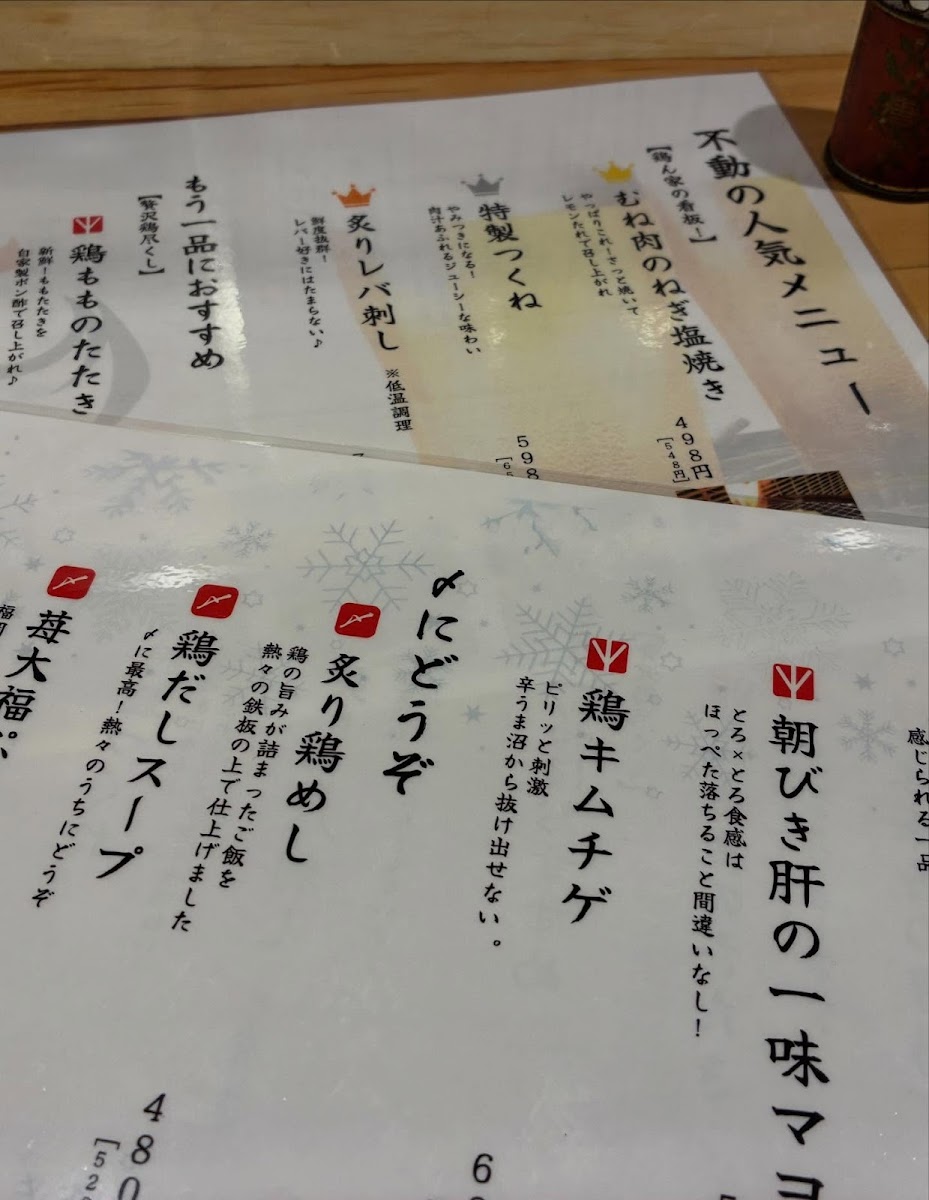 不動の人気メニュー
【鶏ん家の看板!】
むね肉のねぎ塩焼き
498円
[548円]
やっぱりこれ!さっと焼いて
レモンたれで召し上がれ
特製つくね
598
やみつきになる!
肉汁あふれるジューシーな味わい
炙りレバ刺し ※低温調理
鮮度抜群!
レバー好きにはたまらない♪
もう一品におすすめ
【贅沢鶏尽くし】
鶏もものたたき
新鮮!ももたたきを
自家製ポン酢で召し上がれ♪
感じられる一品
朝びき肝の一味マヨ
とろ×とろ食感は
ほっぺた落ちること間違いなし!
鶏キムチゲ
ピリッと刺激
辛うま沼から抜け出せない。
6
〆にどうぞ
炙り鶏めし
鶏の旨みが詰まったご飯を
熱々の鉄板の上で仕上げました
鶏だしスープ
480
[528
〆に最高!熱々のうちにどうぞ
苺大福